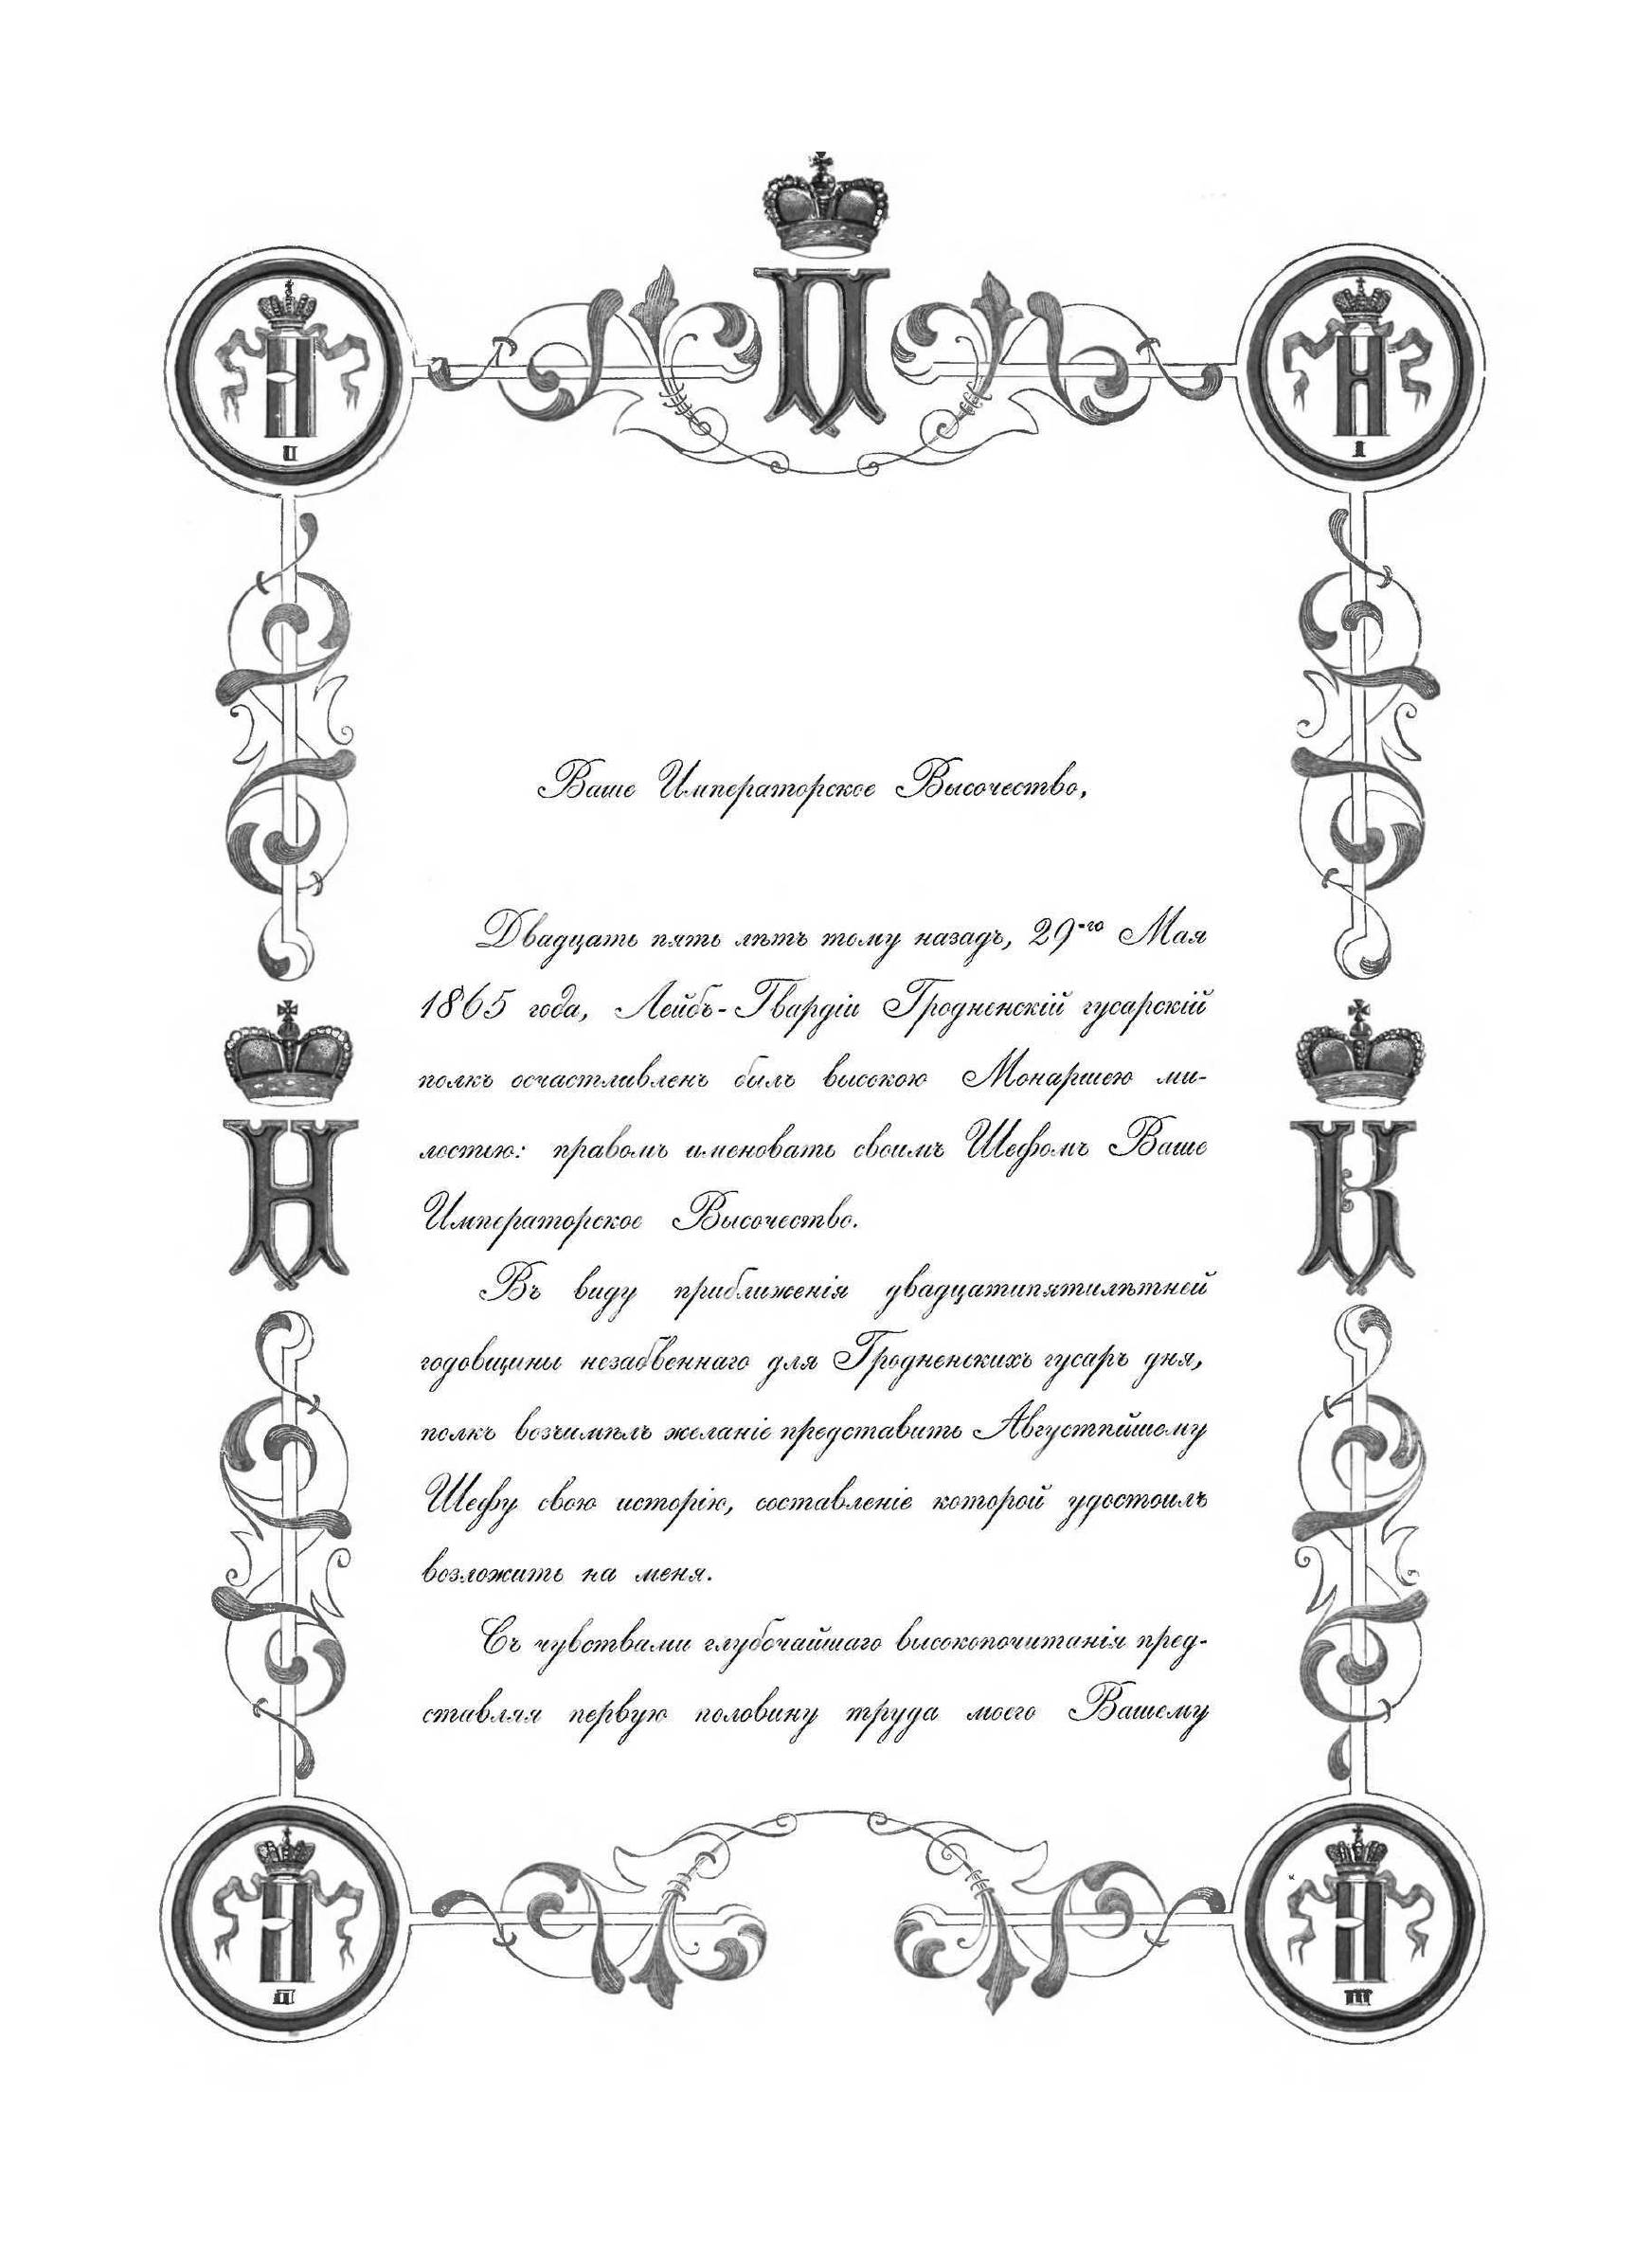 Ваше Императорское Высочество,
Двадцать пять лѣтъ тому назадъ, 29-го Мая
1865 года, Лейбъ-Гвардіи Гродненскій гусарскій
полкъ осчастливленъ былъ высокою Монаршею ми-
лостью: правомъ именовать своимъ Шефомъ Ваше
Императорское Высочество.
Въ виду приближенія двадцатипятилѣтней
годовщины незабвеннаго для Гродненскихъ гусаръ дня,
полкъ возъимѣлъ желаніе представить Августѣйшему
Шефу свою исторію, составленіе которой удостоилъ
возложить на меня.
Съ чувствами глубочайшаго высокопочитанія пред-
ставляя первую половину труда моего Вашему